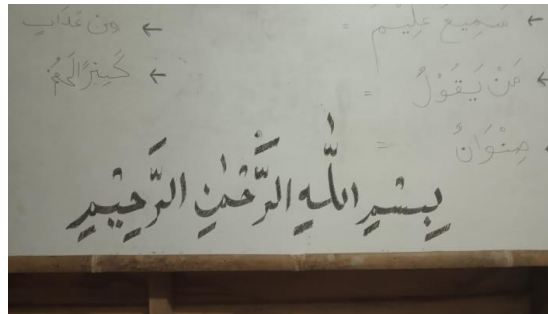 ← سَمِيعٌ عَلِيْمٌ =
← مَنْ يَقُوْلُ =
صِنْوَانٌ =
← مِنْ عَذَابٍ
← كَثِيْرًا لَهُمْ
بِسْمِ اللّٰهِ الرَّحْمٰنِ الرَّحِيْمِ